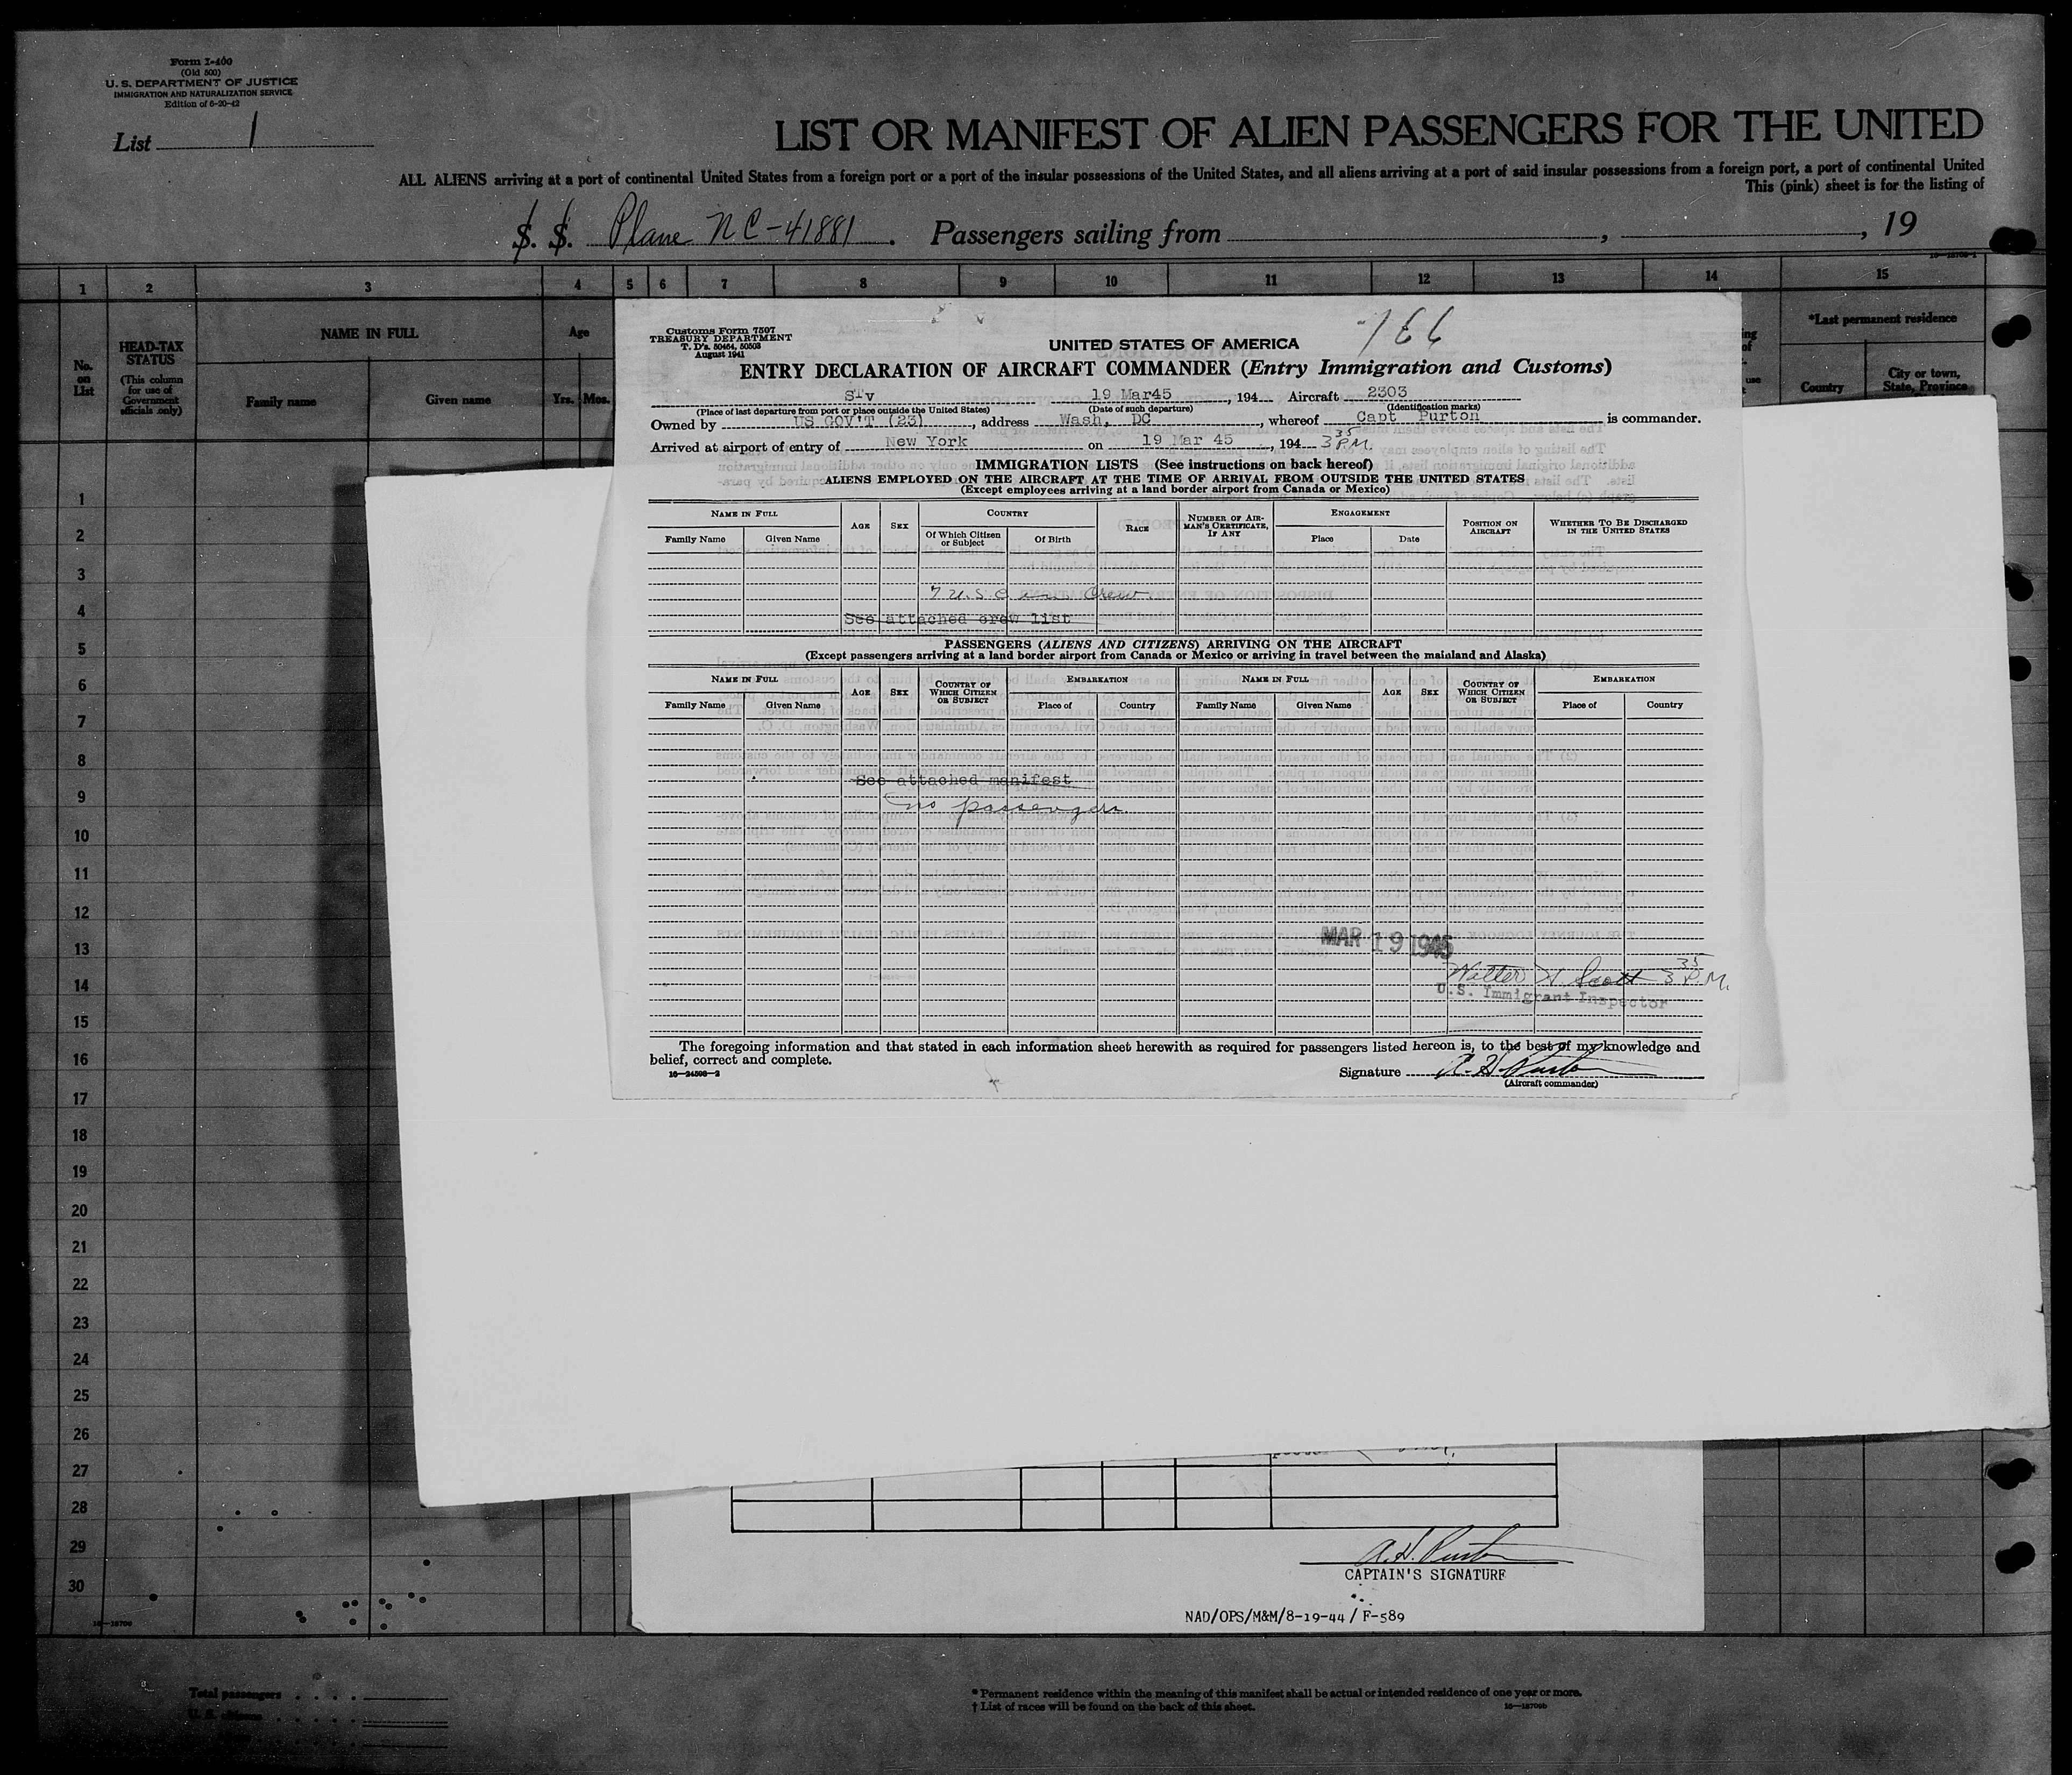 Form I-400
(Old 500)
U. S. DEPARTMENT OF JUSTICE
IMMIGRATION AND NATURALIZATION SERVICE
Edition of 6-20-42
List 1
LIST OR MANIFEST OF ALIEN PASSENGERS FOR THE UNITED
ALL ALIENS arriving at a port of continental United States from a foreign port or a port of the insular possessions of the United States, and all aliens arriving at a port of said insular possessions from a foreign port, a port of continental United
This (pink) sheet is for the listing of
S. S. Plane NC-41881. Passengers sailing from , , 19
1 2 3 4 5 6 7 8 9 10 11 12 13 14 15
No. on List
HEAD-TAX STATUS
(This column for use of Government officials only)
NAME IN FULL
Family name Given name
Age
Yrs. Mos.
*Last permanent residence
Country City or town, State, Province
Customs Form 7507
TREASURY DEPARTMENT
T. D's. 50464, 50503
August 1941
166
UNITED STATES OF AMERICA
ENTRY DECLARATION OF AIRCRAFT COMMANDER (Entry Immigration and Customs)
STV 19 Mar45, 194 Aircraft 2303
(Place of last departure from port or place outside the United States) (Date of such departure) (Identification marks)
Owned by US GOV'T (23), address Wash, DC, whereof Capt Purton is commander.
Arrived at airport of entry of New York on 19 Mar 45, 194 3 35 P.M.
IMMIGRATION LISTS (See instructions on back hereof)
ALIENS EMPLOYED ON THE AIRCRAFT AT THE TIME OF ARRIVAL FROM OUTSIDE THE UNITED STATES
(Except employees arriving at a land border airport from Canada or Mexico)
NAME IN FULL AGE SEX COUNTRY RACE NUMBER OF AIRMAN'S CERTIFICATE, IF ANY ENGAGEMENT POSITION ON AIRCRAFT WHETHER TO BE DISCHARGED IN THE UNITED STATES
Family Name Given Name Of Which Citizen or Subject Of Birth Place Date
7 U.S.C. Crew
See attached crew list
PASSENGERS (ALIENS AND CITIZENS) ARRIVING ON THE AIRCRAFT
(Except passengers arriving at a land border airport from Canada or Mexico or arriving in travel between the mainland and Alaska)
NAME IN FULL AGE SEX COUNTRY OF WHICH CITIZEN OR SUBJECT EMBARKATION NAME IN FULL AGE SEX COUNTRY OF WHICH CITIZEN OR SUBJECT EMBARKATION
Family Name Given Name Place of Country Family Name Given Name Place of Country
See attached manifest
no passengers
MAR 19 1945
Walter H. Scott 3 35 P.M.
U.S. Immigrant Inspector
The foregoing information and that stated in each information sheet herewith as required for passengers listed hereon is, to the best of my knowledge and
belief, correct and complete.
16-24598-2
Signature A. H. Purton
(Aircraft commander)
1
2
3
4
5
6
7
8
9
10
11
12
13
14
15
16
17
18
19
20
21
22
23
24
25
26
27
28
29
30
A. H. Purton
CAPTAIN'S SIGNATURE
NAD/OPS/M&M/8-19-44 / F-589
Total passengers
U. S. citizens
* Permanent residence within the meaning of this manifest shall be actual or intended residence of one year or more.
† List of races will be found on the back of this sheet.